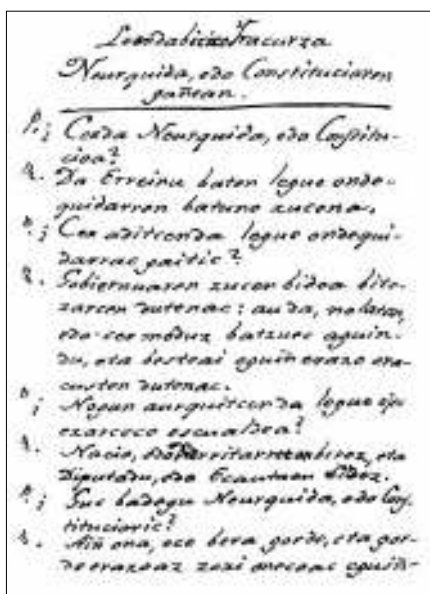 Leendabicico Iracurza
Neurquida, edo Constituciaren
gañean.
P.; Cerda Neurquida, edo Constitu-
cioa?
R. Da Erreinu baten legue onde-
quidarren batune zucena.
P.; Cer aditcenda legue ondequi-
darrac gaitic?
R. Gobiernuaren zucen bidea
zarcen dutenac: au da, nolatan,
edo cer moduz batzuec aguin-
du, eta besteai eguin erazo era-
custen dutenac.
P.; Noñan aurquitcenda legue
ezarceco escualdea?
R. Nacio, edo berritarren eta
Diputadu, edo Ecautuen bidez.
P.; Guc badegu Neurquida, edo Cons-
titucioric?
R. Aiñ ona, ece bera gorde, eta gor-
de erazoaz zori onecoac eguiñ-